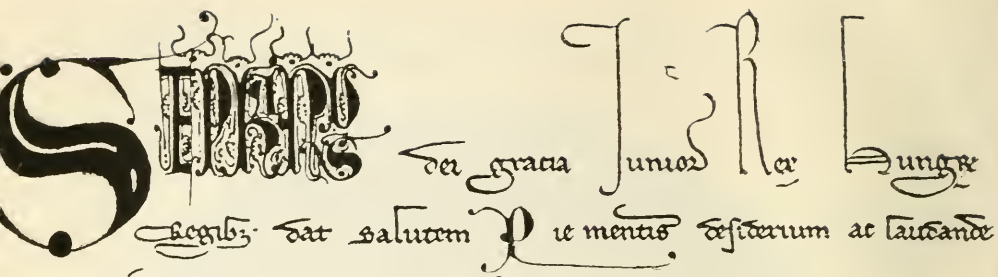 STEPHANS dei gracia Junior Rex Hungar̄
Regibꝫ· dat salutem Pie mentis desiderium ac laudande